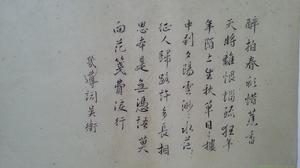 醉拍春衫惜舊香
天將離恨惱疏狂年
年陌上生秋草日日樓
中到夕陽雲渺渺水茫茫
征人歸路許多長相
思本是無憑語莫
向花箋費淚行
幾道詞